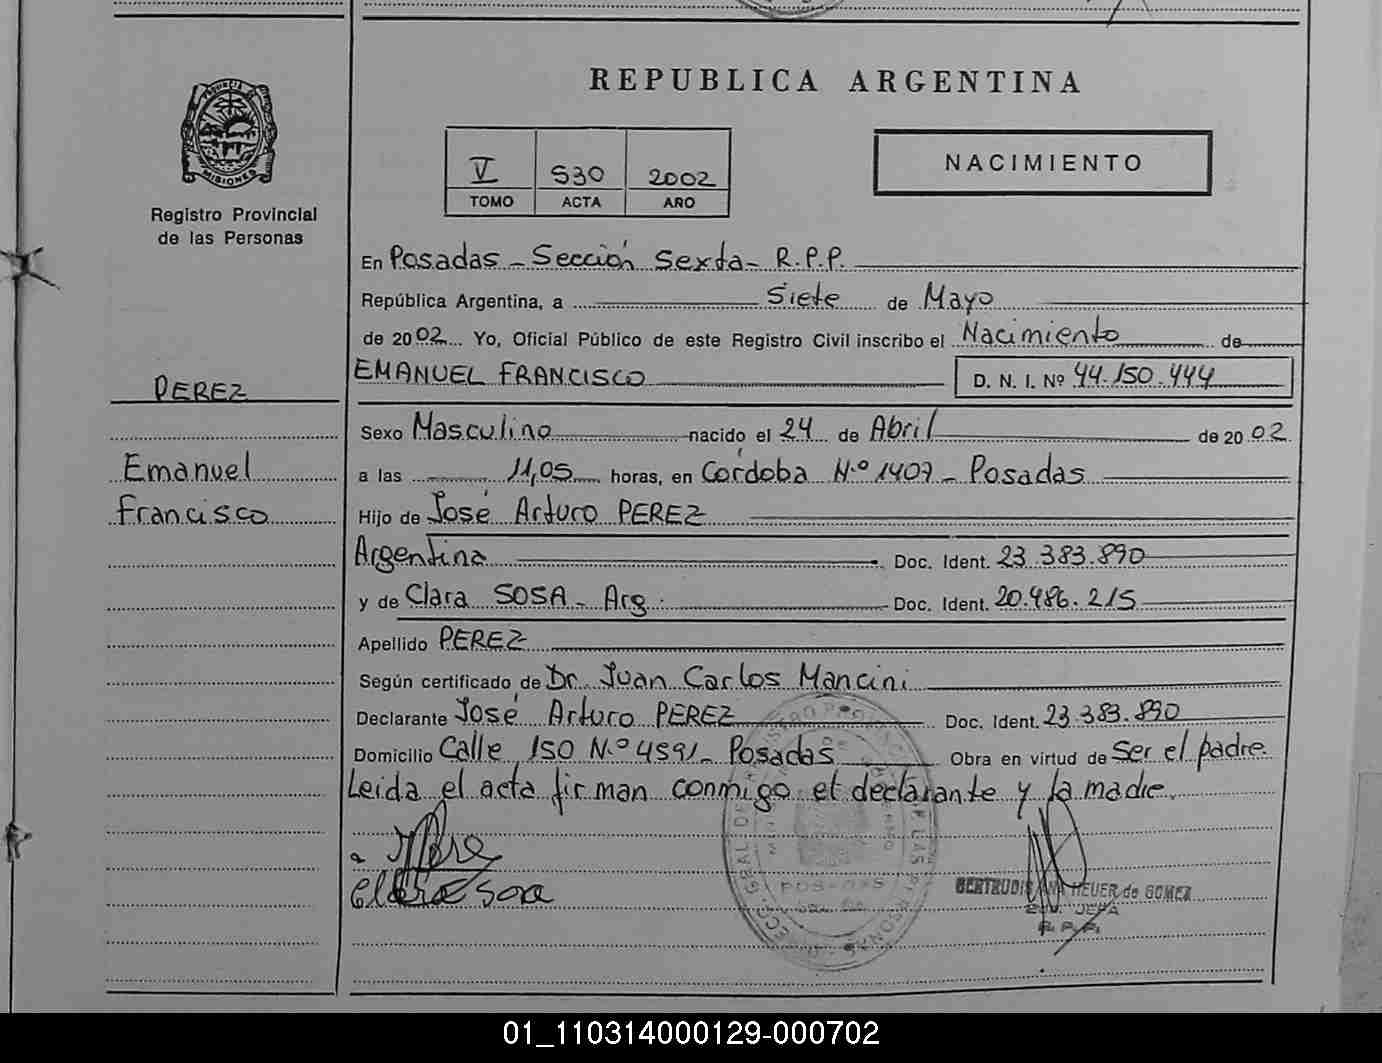 PROVINCIA DE
MISIONES
Registro Provincial
de las Personas
REPUBLICA ARGENTINA
V 530 2002
TOMO ACTA AÑO
NACIMIENTO
En Posadas - Sección Sexta - R.P.P.
República Argentina, a Siete de Mayo
de 2002 Yo, Oficial Público de este Registro Civil inscribo el Nacimiento de
EMANUEL FRANCISCO D. N. I. Nº 44.150.444
PEREZ
Emanuel
Francisco
Sexo Masculino nacido el 24 de Abril de 2002
a las 11,05 horas, en Córdoba N.º 1407 - Posadas
Hijo de José Arturo PEREZ
Argentina Doc. Ident. 23.383.890
y de Clara SOSA - Arg. Doc. Ident. 20.486.215
Apellido PEREZ
Según certificado de Dr. Juan Carlos Mancini
Declarante José Arturo PEREZ Doc. Ident. 23.383.890
Domicilio Calle 150 N.º 4591 - Posadas Obra en virtud de Ser el padre.
Leida el acta firman conmigo el declarante y la madre.
Clara Sosa
GERTRUDIS ANA HEUER de GOMEZ
R. P. P.
POSADAS
01_110314000129-000702